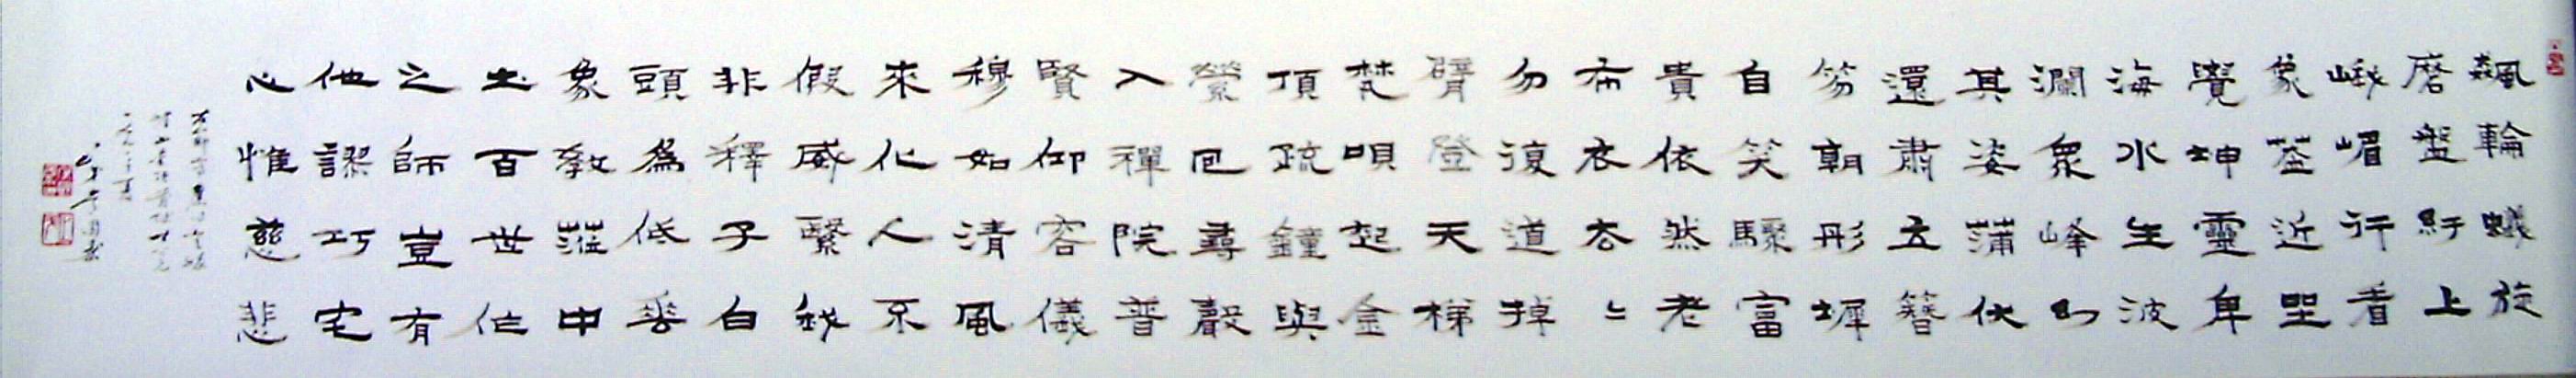 飆輪蟻旋
磨盤紆上
峨嵋行看
象近聖
覺坤靈卑
海水生波
瀾眾峰以
其姿蒲伏
還肅立簪
笏朝彤墀
自笑驟富
貴依然老
布衣衣〻
勿復道掉
臂登天梯
梵唄起金
頂疏鐘與
縈回尋聲
入禪院普
賢仰容儀
穆如清風
來化人不
假威繄我
非釋子白
頭為低垂
象教蒞中
土百世作
之師豈有
他謬巧宅
心惟慈悲